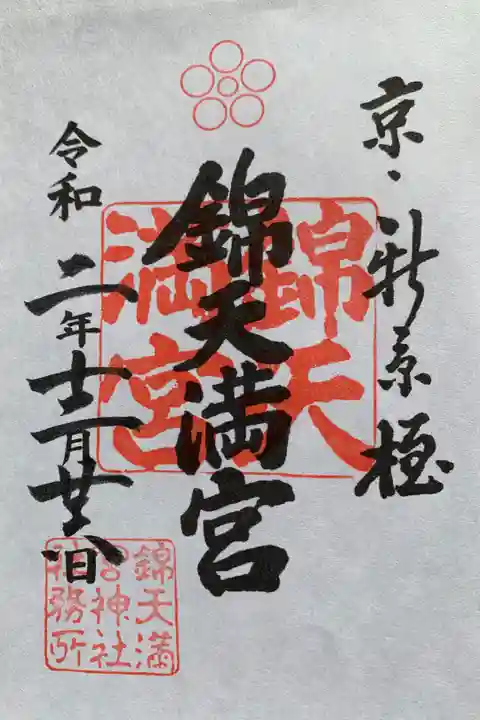 京・新京極
錦天満宮
錦天満宮
令和二年十二月廿八日
錦天満
宮神社
社務所